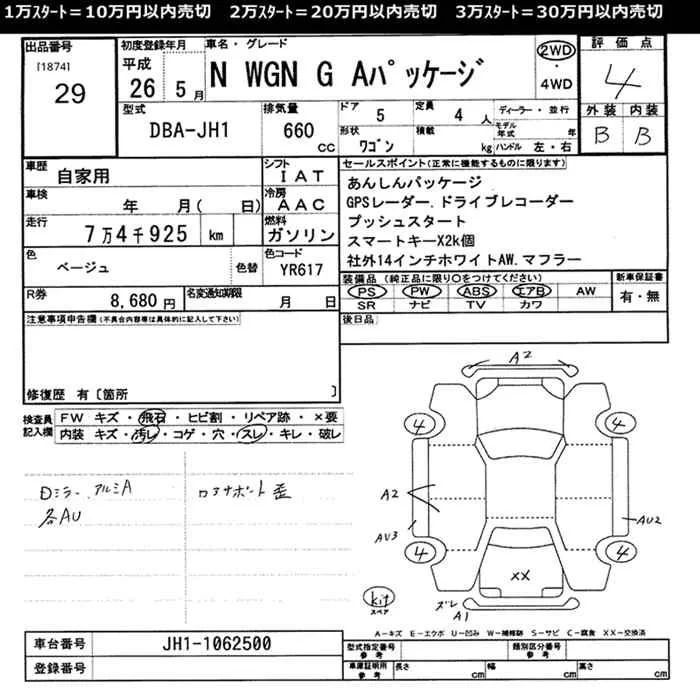 1万ｽﾀｰﾄ＝10万円以内売切　2万ｽﾀｰﾄ＝20万円以内売切　3万ｽﾀｰﾄ＝30万円以内売切
出品番号
[1874]
29
初度登録年月
平成
26 5月
車名・グレード
N WGN G Aパッケージ
2WD
・
4WD
評価点
4
外装 内装
B B
型式
DBA-JH1
排気量
660 cc
ドア
5
定員
4 人
形状
ワゴン
積載
kg
ディーラー・並行
モデル年式 年
ハンドル 左・右
車歴
自家用
シフト
IAT
車検
年 月( 日)
冷房
AAC
走行
7万4千925 km
燃料
ガソリン
色
ベージュ
色替
色コード
YR617
R券
8,680円
名変通知期限
月 日
セールスポイント(正常に機能するものに限ります)
あんしんパッケージ
GPSレーダー.ドライブレコーダー
プッシュスタート
スマートキーX2k個
社外14インチホワイトAW.マフラー
装備品 (純正品に限り○をつけてください)
PS PW ABS エアB AW
SR ナビ TV カワ
新車保証書
有・無
注意事項申告欄(不具合内容等は具体的に記入して下さい)
後日品
修復歴 有〔箇所 〕
検査員記入欄
FW キズ・飛石・ヒビ割・リペア跡・×要
内装 キズ・汚レ・コゲ・穴・スレ・キレ・破レ
Dミラー、アルミA
各AU
ロアサポート歪
A2
4 4
A2
AU3
AU2
4 4
XX
kit
スペア
ズレ
A1
A－キズ E－エクボ U－凹み W－補修跡 S－サビ C－腐食 XX－交換済
車台番号
JH1-1062500
登録番号
型式指定番号
参考
類別区分番号
参考
車庫証明用
参考
長さ cm
幅 cm
高さ cm